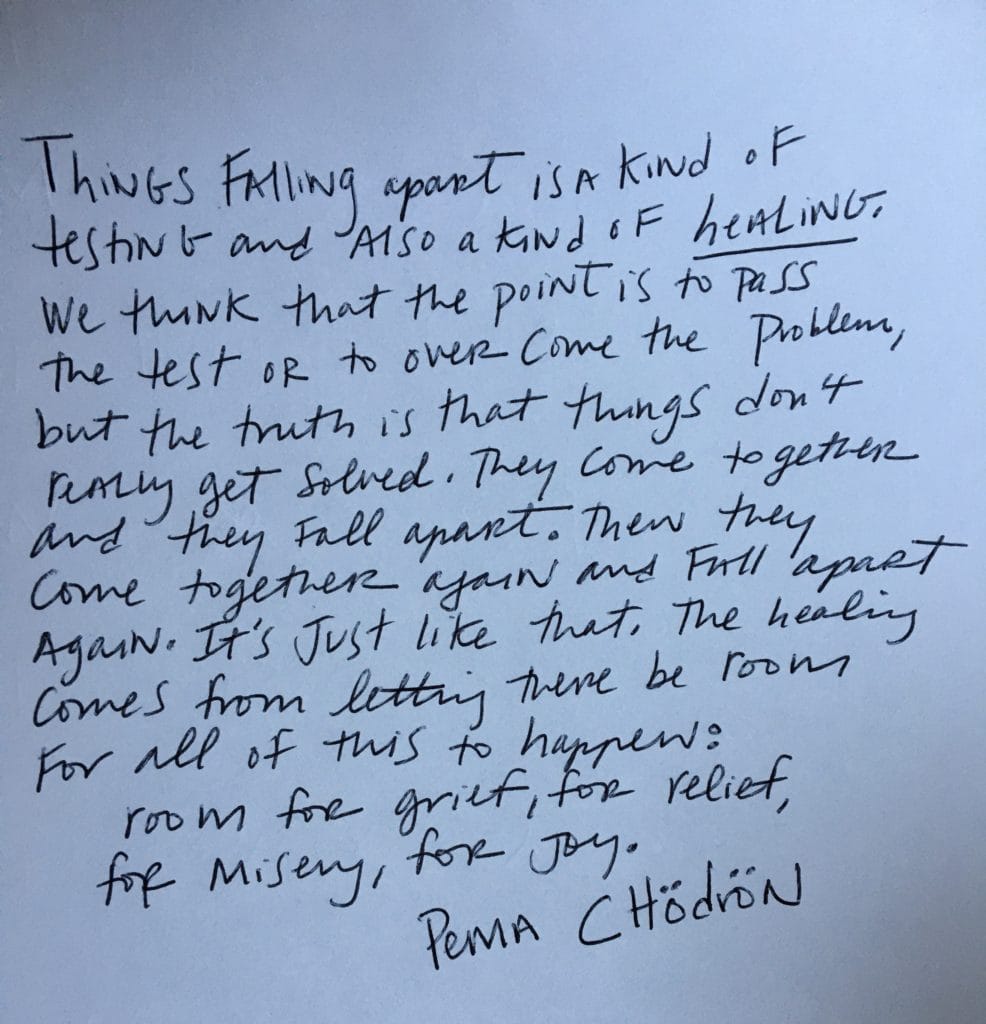 Things Falling apart is a kind of
testing and Also a kind of healing.
We think that the point is to pass
the test or to over come the Problem,
but the truth is that things don't
really get Solved. They come together
and they Fall apart. Then they
Come together again and Fall apart
Again. It's Just like that. The healing
Comes from letting there be room
For all of this to happen:
room for grief, for relief,
for Misery, for Joy.
Pema Chödrön